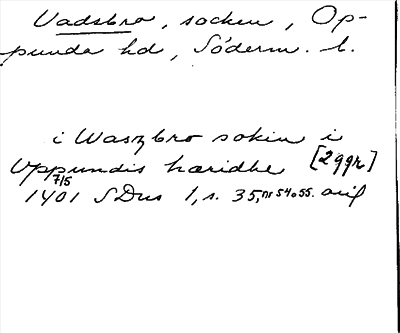 Vadsbro, socken, Op-
punda hd, Söderm. l.
i Waszbro sokin i
Oppundis hæridhe [2 ggr]
7/5
1401 SDns 1, s. 35, nr 54 o 55. avs